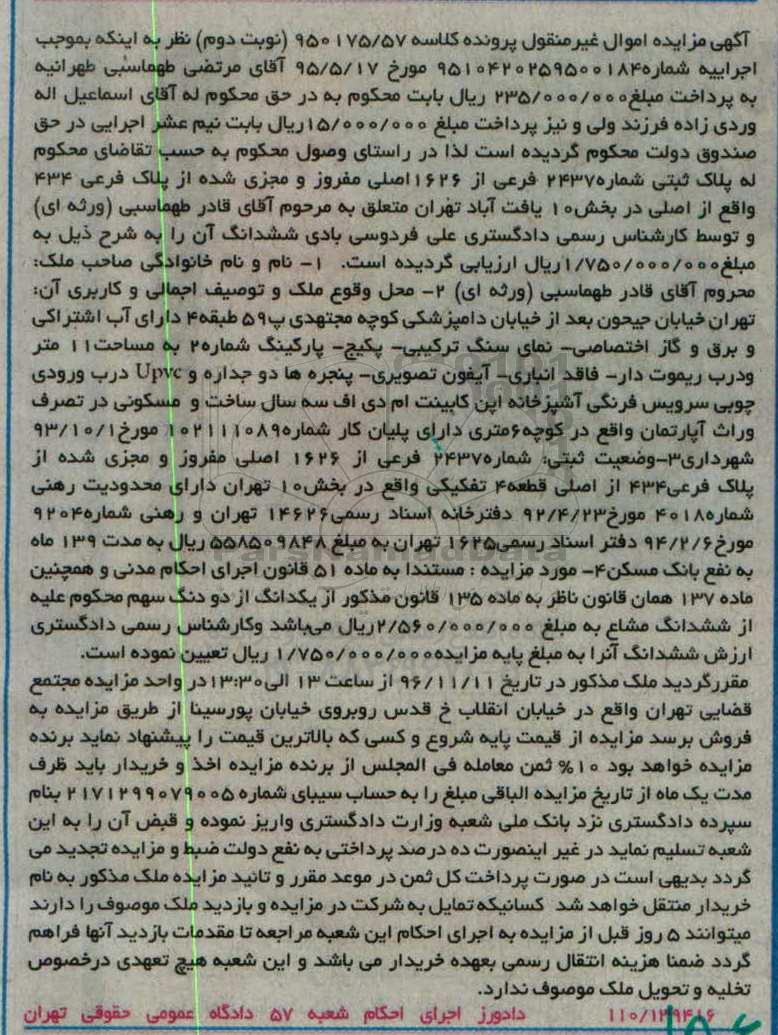 آگهی مزایده اموال غیرمنقول پرونده کلاسه ۹۵۰۱۷۵/۵۷ (نوبت دوم) نظر به اینکه بموجب
اجراییه شماره۹۵۱۰۴۲۰۲۵۹۵۰۰۱۸۴ مورخ ۹۵/۵/۱۷ آقای مرتضی طهماسبی طهرانیه
به پرداخت مبلغ۲۳۵/۰۰۰/۰۰۰ ریال بابت محکوم به در حق محکوم له آقای اسماعیل اله
وردی زاده فرزند ولی و نیز پرداخت مبلغ ۱۵/۰۰۰/۰۰۰ریال بابت نیم عشر اجرایی در حق
صندوق دولت محکوم گردیده است لذا در راستای وصول محکوم به حسب تقاضای محکوم
له پلاک ثبتی شماره۲۴۳۷ فرعی از ۱۶۲۶اصلی مفروز و مجزی شده از پلاک فرعی ۴۳۴
واقع از اصلی در بخش۱۰ یافت آباد تهران متعلق به مرحوم آقای قادر طهماسبی (ورثه ای)
و توسط کارشناس رسمی دادگستری علی فردوسی بادی ششدانگ آن را به شرح ذیل به
مبلغ۱/۷۵۰/۰۰۰/۰۰۰ریال ارزیابی گردیده است. ۱- نام و نام خانوادگی صاحب ملک:
محروم آقای قادر طهماسبی (ورثه ای) ۲- محل وقوع ملک و توصیف اجمالی و کاربری آن:
تهران خیابان جیحون بعد از خیابان دامپزشکی کوچه مجتهدی پ۵۹ طبقه۴ دارای آب اشتراکی
و برق و گاز اختصاصی- نمای سنگ ترکیبی- پکیج- پارکینگ شماره۲ به مساحت۱۱ متر
ودرب ریموت دار- فاقد انباری- آیفون تصویری- پنجره ها دو جداره و Upvc درب ورودی
چوبی سرویس فرنگی آشپزخانه اپن کابینت ام دی اف سه سال ساخت و مسکونی در تصرف
وراث آپارتمان واقع در کوچه۶متری دارای پلیان کار شماره۱۰۲۱۱۱۰۸۹ مورخ۹۳/۱۰/۱
شهرداری۳-وضعیت ثبتی: شماره۲۴۳۷ فرعی از ۱۶۲۶ اصلی مفروز و مجزی شده از
پلاک فرعی۴۳۴ از اصلی قطعه۴ تفکیکی واقع در بخش۱۰ تهران دارای محدودیت رهنی
شماره۴۰۱۸ مورخ۹۲/۴/۲۳ دفترخانه اسناد رسمی۱۴۶۲۶ تهران و رهنی شماره۹۲۰۴
مورخ۹۴/۲/۶ دفتر اسناد رسمی۱۶۲۵ تهران به مبلغ ۵۵۸۵۰۹۸۴۸ ریال به مدت ۱۳۹ ماه
به نفع بانک مسکن۴- مورد مزایده : مستندا به ماده ۵۱ قانون اجرای احکام مدنی و همچنین
ماده ۱۳۷ همان قانون ناظر به ماده ۱۳۵ قانون مذکور از یکدانگ از دو دنگ سهم محکوم علیه
از ششدانگ مشاع به مبلغ ۲/۵۶۰/۰۰۰/۰۰۰ریال می‌باشد وکارشناس رسمی دادگستری
ارزش ششدانگ آنرا به مبلغ پایه مزایده۱/۷۵۰/۰۰۰/۰۰۰ ریال تعیین نموده است.
مقررگردید ملک مذکور در تاریخ ۹۶/۱۱/۱۱ از ساعت ۱۳ الی۱۳:۳۰در واحد مزایده مجتمع
قضایی تهران واقع در خیابان انقلاب خ قدس روبروی خیابان پورسینا از طریق مزایده به
فروش برسد مزایده از قیمت پایه شروع و کسی که بالاترین قیمت را پیشنهاد نماید برنده
مزایده خواهد بود ۱۰% ثمن معامله فی المجلس از برنده مزایده اخذ و خریدار باید ظرف
مدت یک ماه از تاریخ مزایده الباقی مبلغ را به حساب سیبای شماره ۲۱۷۱۲۹۹۰۷۹۰۰۵ بنام
سپرده دادگستری نزد بانک ملی شعبه وزارت دادگستری واریز نموده و قبض آن را به این
شعبه تسلیم نماید در غیر اینصورت ده درصد پرداختی به نفع دولت ضبط و مزایده تجدید می
گردد بدیهی است در صورت پرداخت کل ثمن در موعد مقرر و تائید مزایده ملک مذکور به نام
خریدار منتقل خواهد شد کسانیکه تمایل به شرکت در مزایده و بازدید ملک موصوف را دارند
میتوانند ۵ روز قبل از مزایده به اجرای احکام این شعبه مراجعه تا مقدمات بازدید آنها فراهم
گردد ضمنا هزینه انتقال رسمی بعهده خریدار می باشد و این شعبه هیچ تعهدی درخصوص
تخلیه و تحویل ملک موصوف ندارد.
۱۱۰/۱۲۹۴۱۶ دادورز اجرای احکام شعبه ۵۷ دادگاه عمومی حقوقی تهران